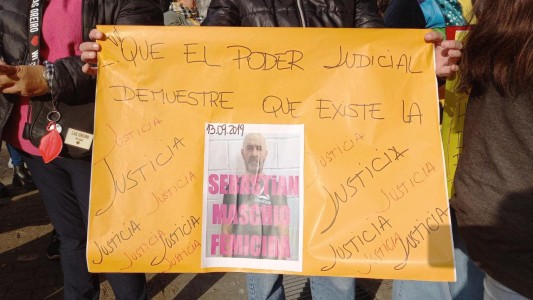 QUE EL PODER JUDICIAL
DEMUESTRE QUE EXISTE LA
JUSTICIA
JUSTICIA
JUSTICIA
JUSTICIA
JUSTICIA
JUSTICIA
JUSTICIA
13.09.2019
SEBASTIAN
MASCULO
FEMICIDA
JUSTICIA
JUSTICIA
JUSTICIA
JUSTICIA
JUSTICIA
JUSTICIA